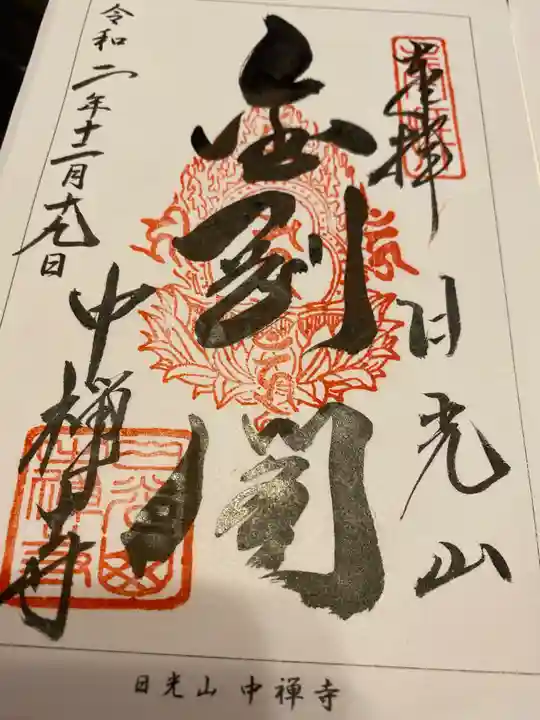 奉拝
日光山
金剛閣
中禅寺
令和二年十一月十九日
日光山 中禅寺